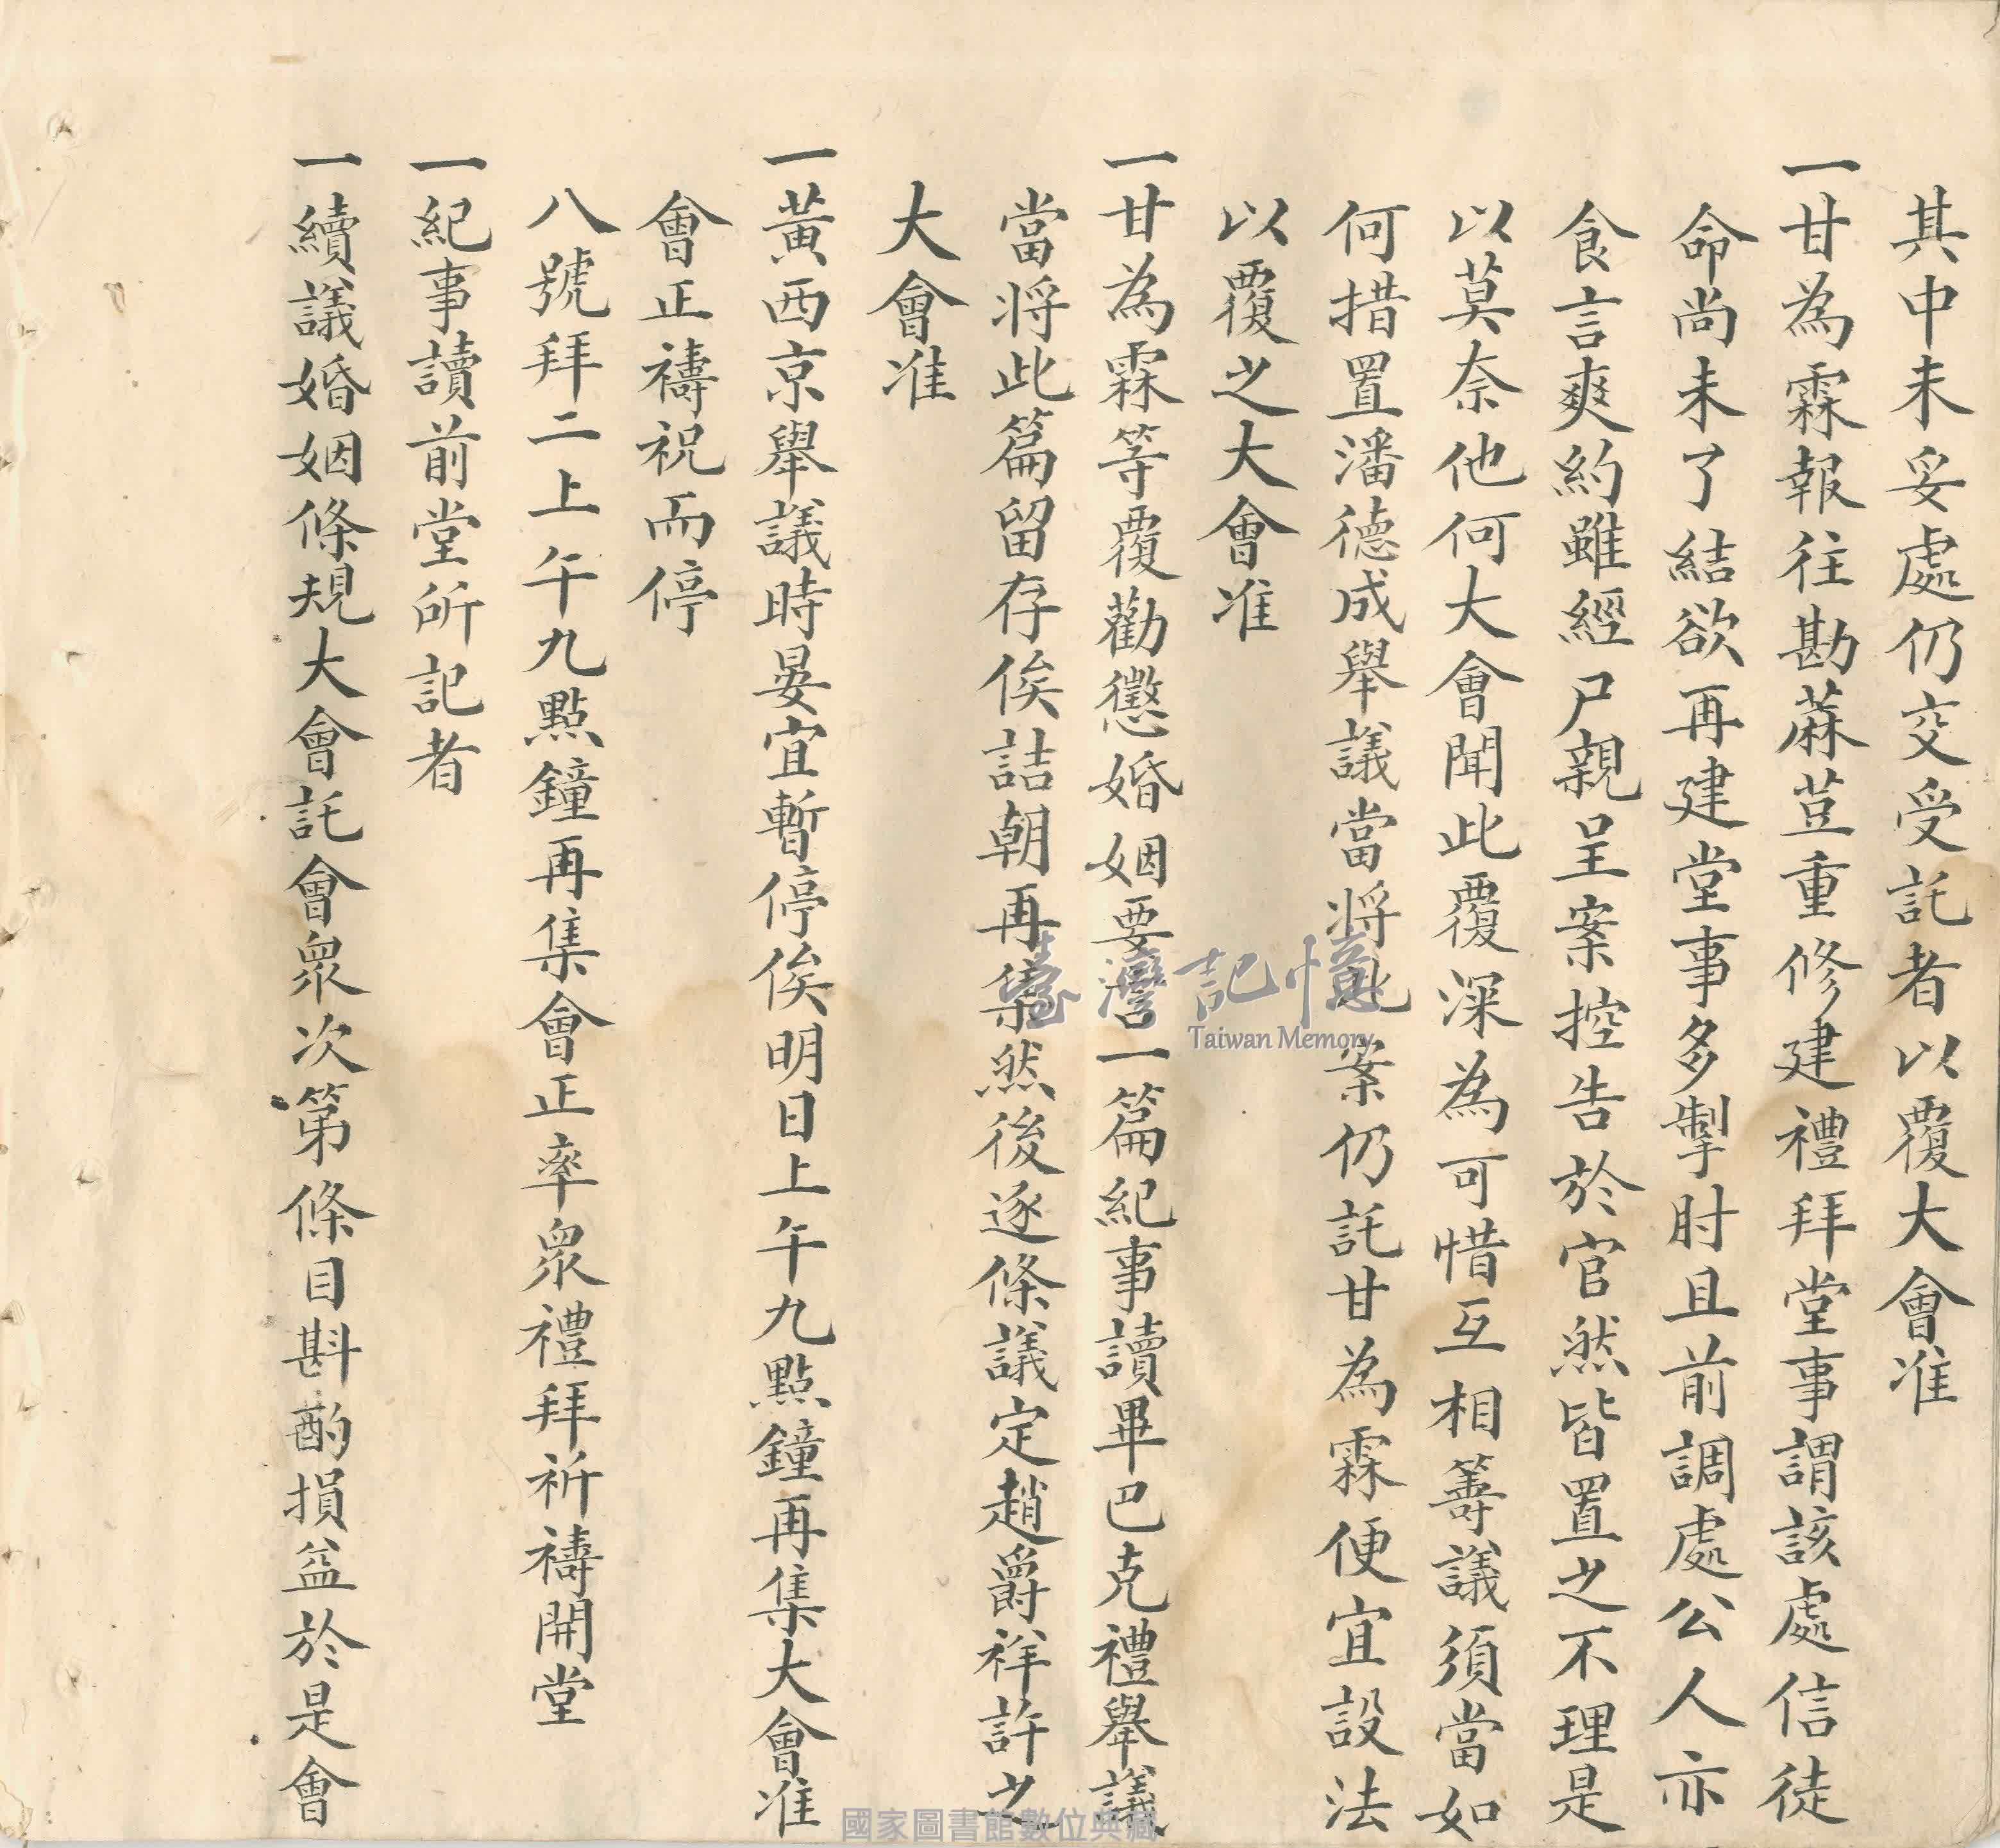 其中未妥處仍交受託者以覆大會准
一甘為霖報往勘蔴荳重修建禮拜堂事謂該處信徒
命尚未了結欲再建堂事多掣肘且前調處公人亦
食言爽約雖經尸親呈案控告於官然皆置之不理是
以莫奈他何大會聞此覆深為可惜互相籌議須當如
何措置潘德成舉議當將此案仍託甘為霖便宜設法
以覆之大會准
一甘為霖等覆勸懲婚姻要言一篇紀事讀畢巴克禮舉議
當將此篇留存俟詰朝再集然後逐條議定趙爵祥許之
大會准
一黃西京舉議時晏宜暫停俟明日上午九點鐘再集大會准
會正禱祝而停
八號拜二上午九點鐘再集會正率眾禮拜祈禱開堂
一紀事讀前堂所記者
一續議婚姻條規大會託會眾次第條目斟酌損益於是會
臺灣記憶
Taiwan Memory
國家圖書館數位典藏